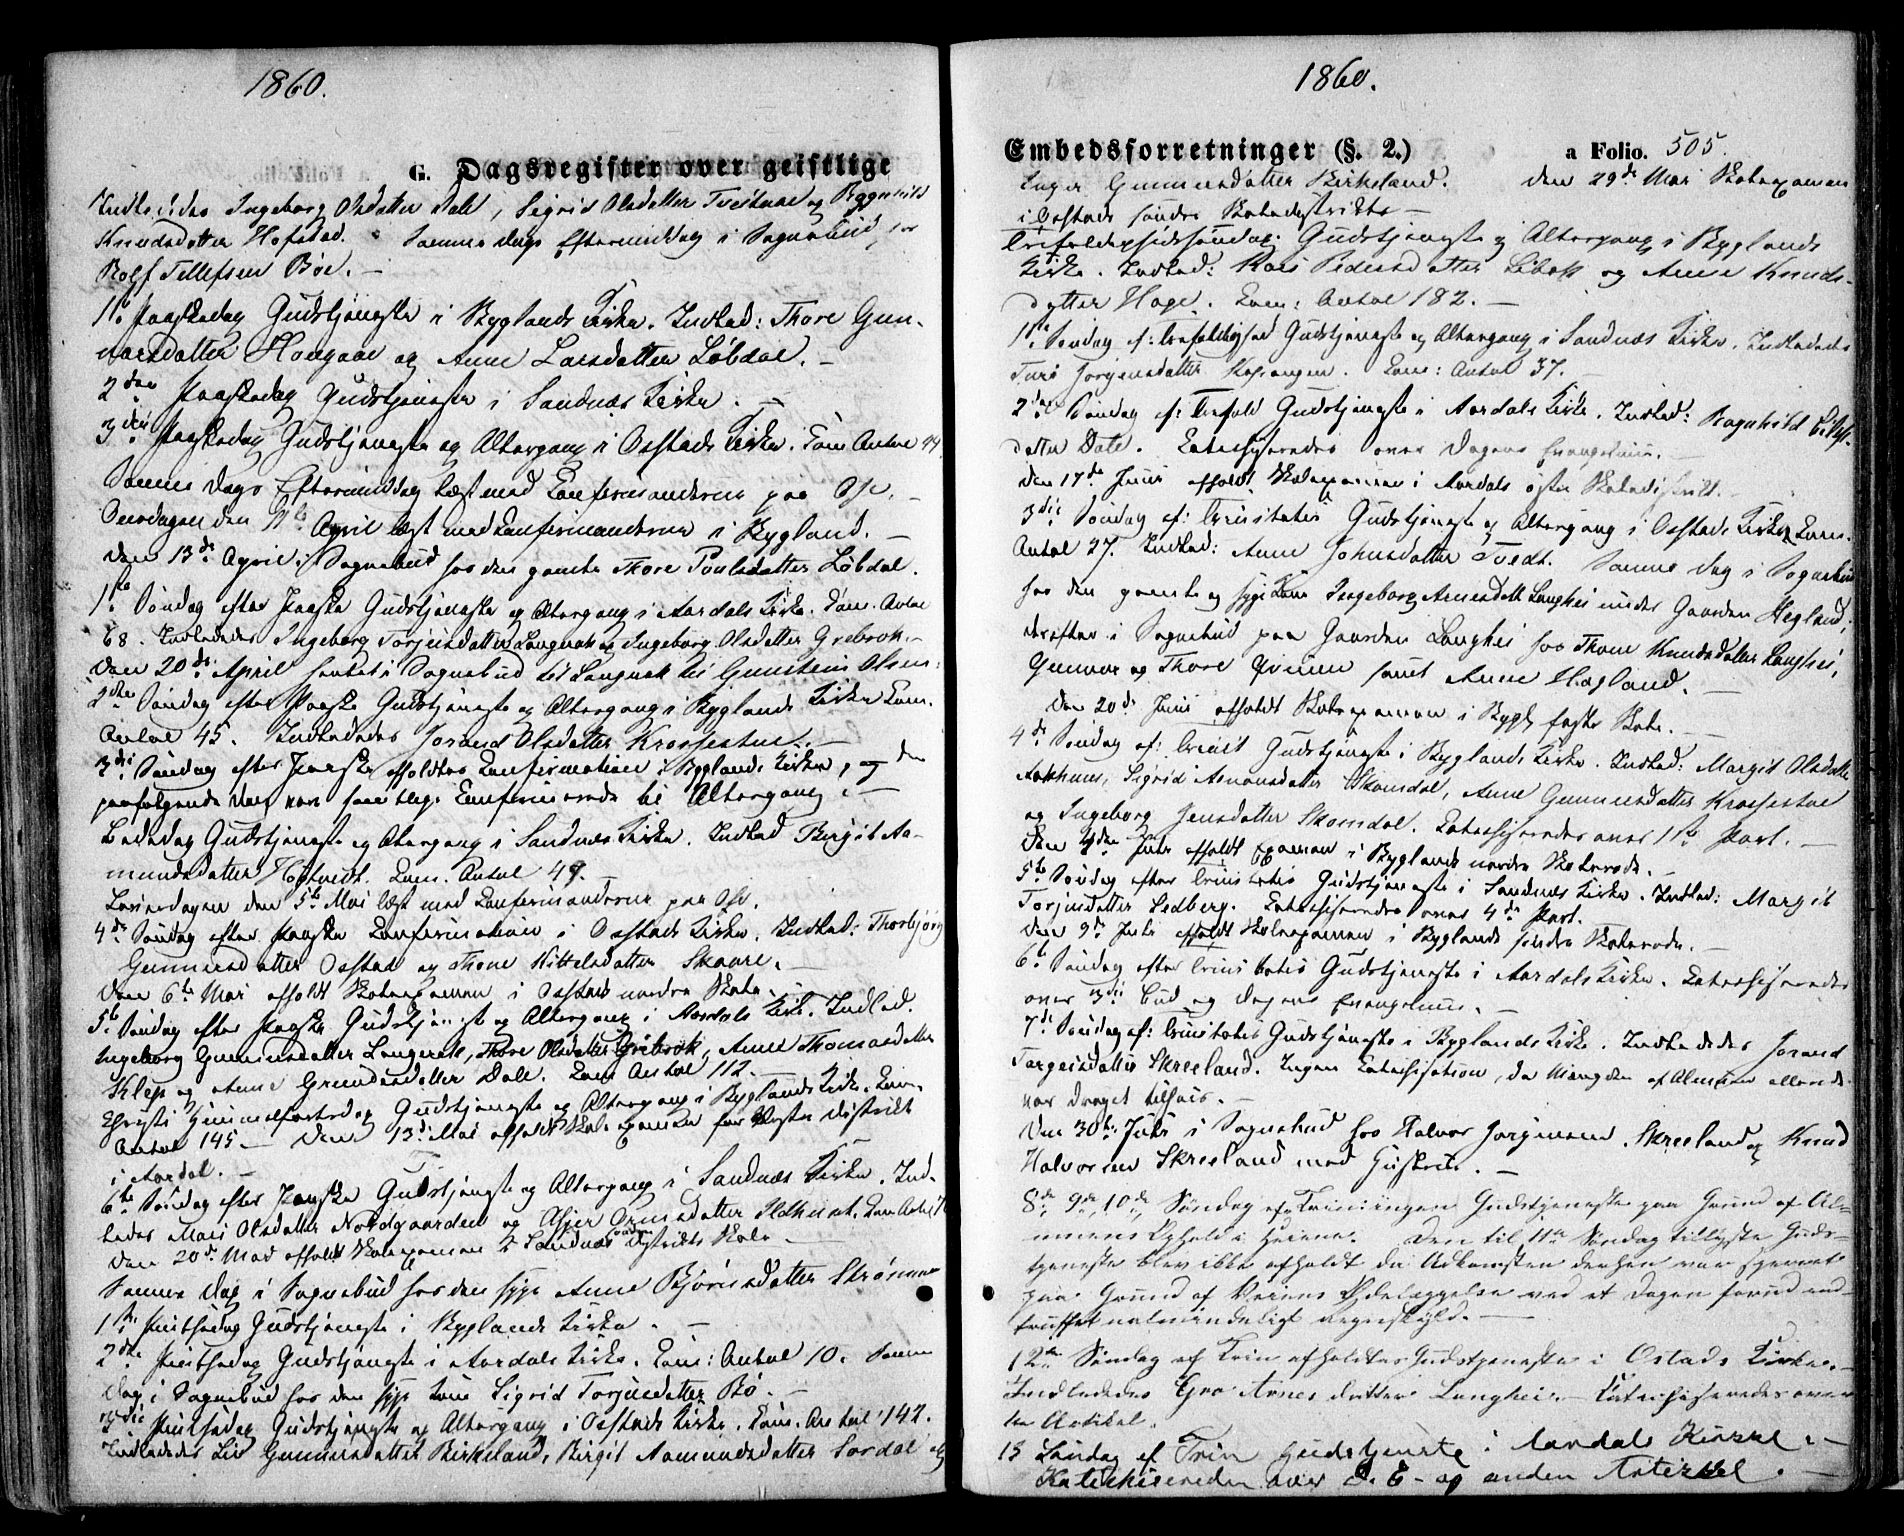 1860.
G. Dagsregister over geistlige
Indledes Ingeborg Olsdatter Dale, Sigrid Olsdatter Tveitnæs og Ragnhild
Knudsdatter Hofstad. Samme dags Eftermiddag i Sognebud for
Rolf Tellefsen Bøe. —
1ste Paaskedag Gudstjeneste i Byglands Kirke. Indled: Thore Gun-
narsdatter Haugaae og Anne Larsdatter Løbdal. —
2den Paaskedag Gudstjeneste i Sandnæs Kirke. —
3die Paaskedag Gudstjeneste og Altergang i Osstads Kirke. Com: Antal 44.
Samme Dags Eftermiddag læst med Confirmanderne paa Ose. —
Onsdagen den 11te April læst med Confirmanderne i Bygland. —
Den 13de April i Sognebud hos den gamle Thore Poulsdatter Løbdal.
1ste Søndag efter Paaske Gudstjeneste og Altergang i Aardals Kirke. Com. Antal
68. Indledes Ingeborg Torjusdatter Langerak og Ingeborg Olsdatter Grebrok. —
Den 20de April hentet i Sognebud til Langerak til Gunstein Olsen.
2den Søndag efter Paaske Gudstjeneste og Altergang i Byglands Kirke Com.
Antal 45. Indledes Jorand Olsdatter Krossestue. —
3die Søndag efter Paaske afholdtes Confirmation i Byglands Kirke, og den
paafølgende Dag vare samtlige Confirmerede til Altergang. —
Bededag Gudstjeneste og Altergang i Sandnæs Kirke. Indled Birgit Aa-
mundsdatter Hoftvedt. Com. Antal 49. —
Løverdagen den 5te Mai læst med Confirmanderne paa Ose.
4de Søndag efter Paaske Confirmation i Osstads Kirke. Indled: Thorbjørg
Gunnersdatter Osstad og Thone Kittelsdatter Skaare. —
Den 6te Mai afholdt Skoleexamen i Osstads nordre Skole. —
5te Søndag efter Paaske Gudstjeneste og Altergang i Aardals Kirke. Indled.
Ingeborg Gunnersdatter Langerak, Thore Olsdatter Grebrok, Anne Thomasdatter
Klep og Anne Gundersdatter Dale. Com Antal 112. —
Christi Himmelfartsdag Gudstjeneste og Altergang i Byglands Kirke. Com.
Antal 145. — Den 13de Mai afholdt Skoleexamen for Vestre District
i Aardal. —
6te Søndag efter Paaske Gudstjeneste og Altergang i Sandnæs Kirke. Ind-
ledes Mari Olsdatter Nordgaarden og Asjer Ormsdatter Com Antal
Den 20de Mai afholdt Skoleexamen i Sandnæs søndre Distrikts Skole —
Samme Dag i Sognebud hos den syge Anne Bjørnsdatter Strømme
1ste Pintsedag Gudstjeneste i Byglands Kirke. —
2den Pintsedag Gudstjeneste i Aardals Kirke. Com: Antal 10. Samme
Dag i Sognebud hos den syge Kone Sigrid Torjusdatter Bø. —
3die Pintsedag Gudstjeneste og Altergang i Osstads Kirke. Com. Antal 142.
Indledes Liv Gunnersdatter Birkeland, Birgit Aamundsdatter Sordal og
1860.
Embedsforretninger (§. 2.) a Folio. 505.
Inger Gunnersdatter Birkeland. Den 29de Mai Skoleexamen
i Osstads søndre Skoledistrikt —
Trefoldighedssøndag Gudstjeneste og Altergang i Byglands
Kirke. Indled: Mari Pedersdatter Liboe og Anne Knuds-
datter Hage. Com: Antal 182. —
1ste Søndag ef: Trefoldighed Gudstjeneste og Altergang i Sandnæs Kirke. Indledes
Turi Jørgensdatter Com: Antal 37. —
2den Søndag ef: Trefold Gudstjeneste i Aardals Kirke. Indled: Ragnhild
datter Dale. Catechiseredes over Dagens Evangelium. —
Den 17de Juni afholdt Skoleexamen i Aardals østre Skoledistrikt. —
3die Søndag ef: Trinitatis Gudstjeneste og Altergang i Osstads Kirke Com.
Antal 27. Indled: Anne Johnsdatter Tvedt. Samme Dag i Sognebud
hos den gamle og syge Kone Ingeborg Arnesdatt Langhei under Gaarden Hegland,
derefter i Sognebud paa Gaarden Langhei hos Thone Knudsdatter Langhei,
Gunnar og Thore samt Anne Hegland. —
Den 20de Juni afholdt Skoleexamen i Bygl: faste Skole. —
4de Søndag ef: Trinit Gudstjeneste i Byglands Kirke. Indled: Margit Olsdatter
Aakhuus, Sigrid Amundsdatter Skomdal, Anne Gunnersdatter Krossestue
og Ingeborg Jensdatter Skomdal. Catechiseredes over 1ste Part. —
Den 4de Juli afholdt Examen i Byglands nordre Skolerode. —
5te Søndag efter Trinitatis Gudstjeneste i Sandnæs Kirke. Indled: Margit
Torjusdatter Lidberg. Catechiseredes over 4de Part.
Den 9de Juli afholdt Skoleexamen i Byglands søndre Skolerode. —
6te Søndag efter Trinitatis Gudstjeneste i Aardals Kirke. Catechiseredes
over 3die Bud og Dagens Evangelium. —
7de Søndag ef: Trinitatis Gudstjeneste i Byglands Kirke. Indledes Jorand
Targeisdatter Skreeland. Ingen Catechisation, da Mængden af Almuen allerede
var draget tilheis. —
Den 30te Juli i Sognebud hos Halvor Jørgensen Skreeland og Knud
Halvorsen Skreeland med Hustru. —
8de 9de, 10de Søndag ef Trin ingen Gudstjeneste paa Grund af Al-
muens Ophold i Heiene. — Den til 11te Søndag tillyste Guds-
tjeneste blev ikke afholdt da Adkomsten derhen var sperret
paa Grund af Veiens Ødelæggelse ved et Dagen forud ind-
truffet ualmindeligt Regnskyld. —
12te Søndag ef Trin afholdtes Gudstjeneste i Ostads Kirke. —
Indledes Gro Arnesdatter Langhei. — Catechiseredes over
1ste Artikel.
13 Søndag ef Trin Gudstjeneste i Aardals Kirke. —
Katechiseredes over d. E – og anden Artikel. —